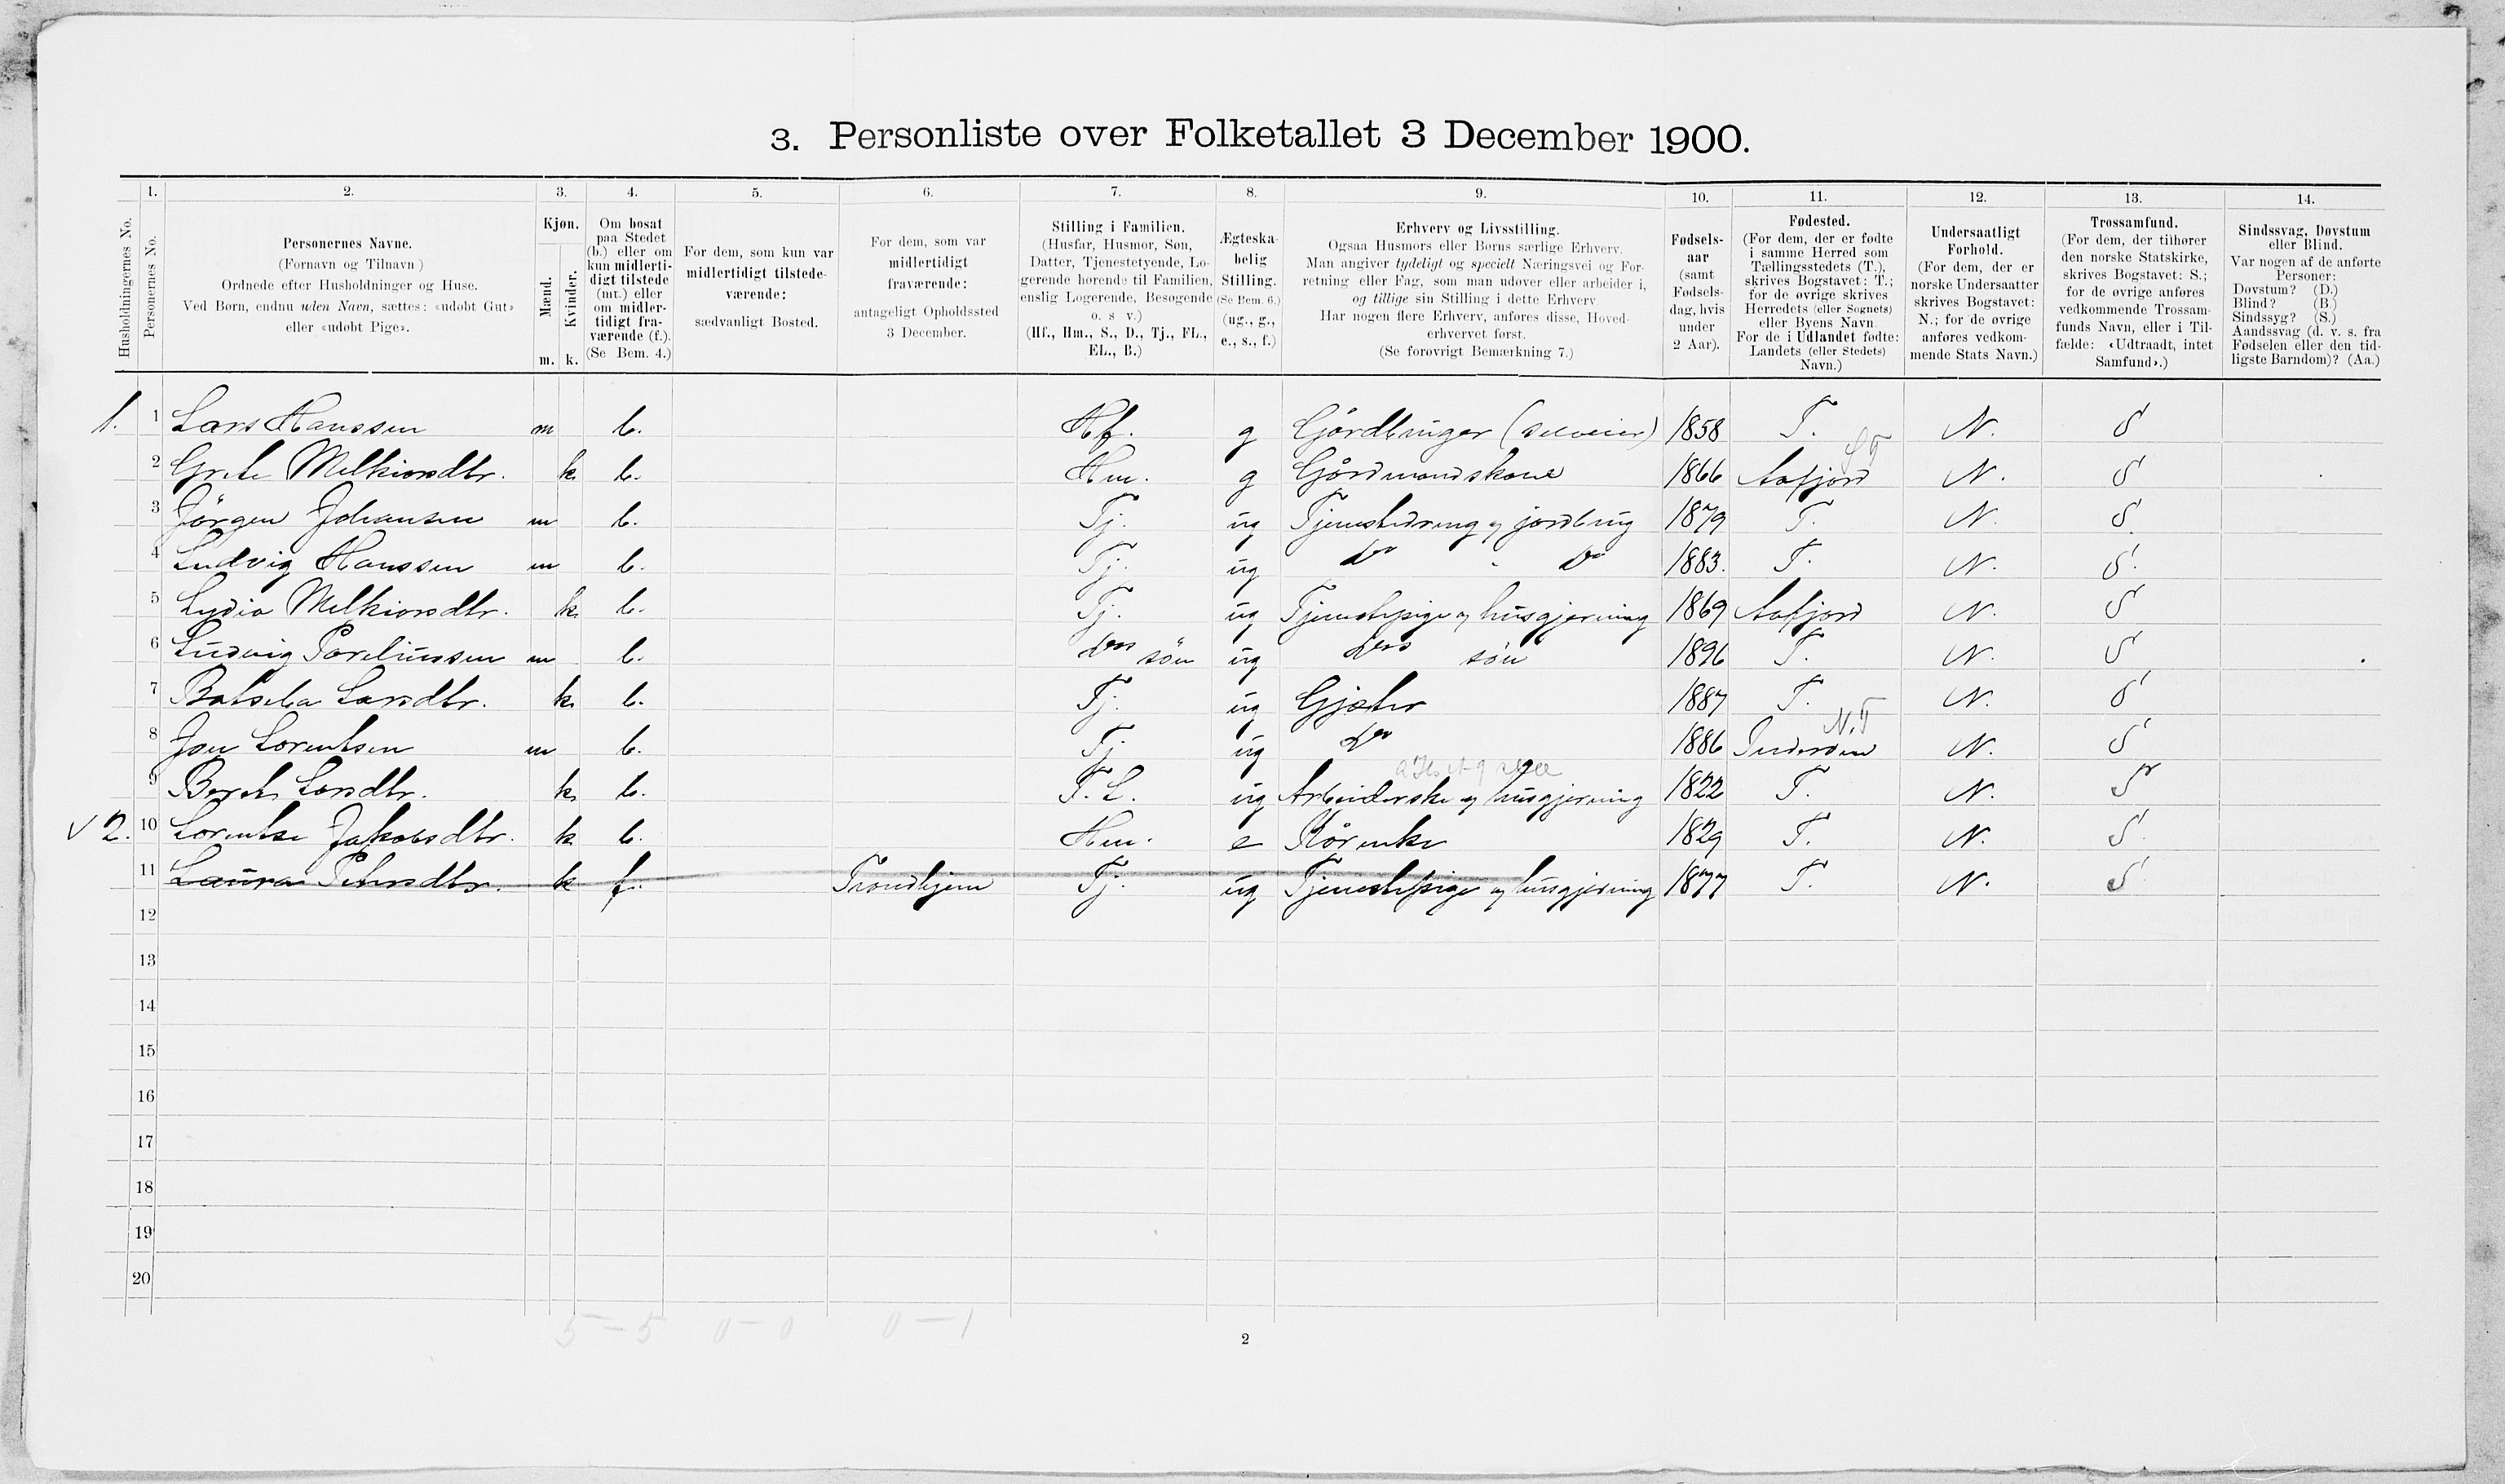 3. Personliste over Folketallet 3 December 1900.
1. 2. 3. 4. 5. 6. 7. 8. 9. 10. 11. 12. 13. 14.
Husholdningernes No.
Personernes No.
Personernes Navne.
(Fornavn og Tilnavn)
Ordnede efter Husholdninger og Huse.
Ved Børn, endnu uden Navn, sættes: «udøbt Gut»
eller «udøbt Pige».
Kjøn.
Mænd.
Kvinder.
m. k.
Om bosat
paa Stedet
(b.) eller om
kun midlerti-
digt tilstede
(mt.) eller
om midler-
tidigt fra-
værende (f.).
(Se Bem. 4.)
For dem, som kun var
midlertidigt tilstede-
værende:
sædvanligt Bosted.
For dem, som var
midlertidigt
fraværende:
antageligt Opholdssted
3 December.
Stilling i Familien.
(Husfar, Husmor, Søn,
Datter, Tjenestetyende, Lo-
gerende hørende til Familien,
enslig Logerende, Besøgende
o. s v.)
(Hf., Hm., S., D., Tj., FL.,
EL., B.)
Ægteska-
belig
Stilling.
(Se Bem. 6.)
(ug., g.,
e., s., f.)
Erhverv og Livsstilling.
Ogsaa Husmors eller Børns særlige Erhverv.
Man angiver tydeligt og specielt Næringsvei og For-
retning eller Fag, som man udøver eller arbeider i,
og tillige sin Stilling i dette Erhverv.
Har nogen flere Erhverv, anføres disse, Hoved-
erhvervet først.
(Se forøvrigt Bemærkning 7.)
Fødsels-
aar
(samt
Fødsels-
dag, hvis
under
2 Aar).
Fødested.
(For dem, der er fødte
i samme Herred som
Tællingsstedets (T.),
skrives Bogstavet: T.;
for de øvrige skrives
Herredets (eller Sognets)
eller Byens Navn.
For de i Udlandet fødte:
Landets (eller Stedets)
Navn.)
Undersaatligt
Forhold.
(For dem, der er
norske Undersaatter
skrives Bogstavet:
N.; for de øvrige
anføres vedkom-
mende Stats Navn.)
Trossamfund.
(For dem, der tilhører
den norske Statskirke,
skrives Bogstavet: S.;
for de øvrige anføres
vedkommende Trossam-
funds Navn, eller i Til-
fælde: «Udtraadt, intet
Samfund».)
Sindssvag, Døvstum
eller Blind.
Var nogen af de anførte
Personer:
Døvstum? (D.)
Blind? (B.)
Sindssyg? (S.)
Aandssvag (d. v. s. fra
Fødselen eller den tid-
ligste Barndom)? (Aa.)
1. 1 Lars Hanssen m b. Hf. g Gårdbruger (selveier) 1858 T. N. S
2 Grete Melkiorsdtr. k b. Hm. g Gårdmandskone 1866 Aafjord ST N. S
3 Jörgen Johansen m b. Tj. ug Tjenestedreng v jordbrug 1879 T. N. S
4 Ludvig Hanssen m b. Tj. ug do do 1883. T. N. S.
5 Lydia Melkiorsdtr. k b. Tj. ug Tjenestepige v husgjerning 1869 Aafjord N. S
6 Ludvig Pareliussen m b. des sön ug des sön 1896 T. N. S
7 Batseba Larsdtr. k b. Tj. ug Gjæter 1887 T. N. S
8 Jon Lorentsen m b. Tj. ug do 1886 Inderøen N.T N. S
9 Beret Larsdtr. k b. F.L. ug Arbeiderske v husgjerning 1822 T. N. S
√ 2. 10 Lorentse Jakobsdtr. k b. Hm. e Kårenke 1829 T. N. S
11 Laura Petersdtr. k f. Trondhjem Tj. ug Tjenestepige v husgjerning 1877 T. N. S
12
13
14
15
16
17
18
19
20
5 - 5 0 - 0 0 - 1
2